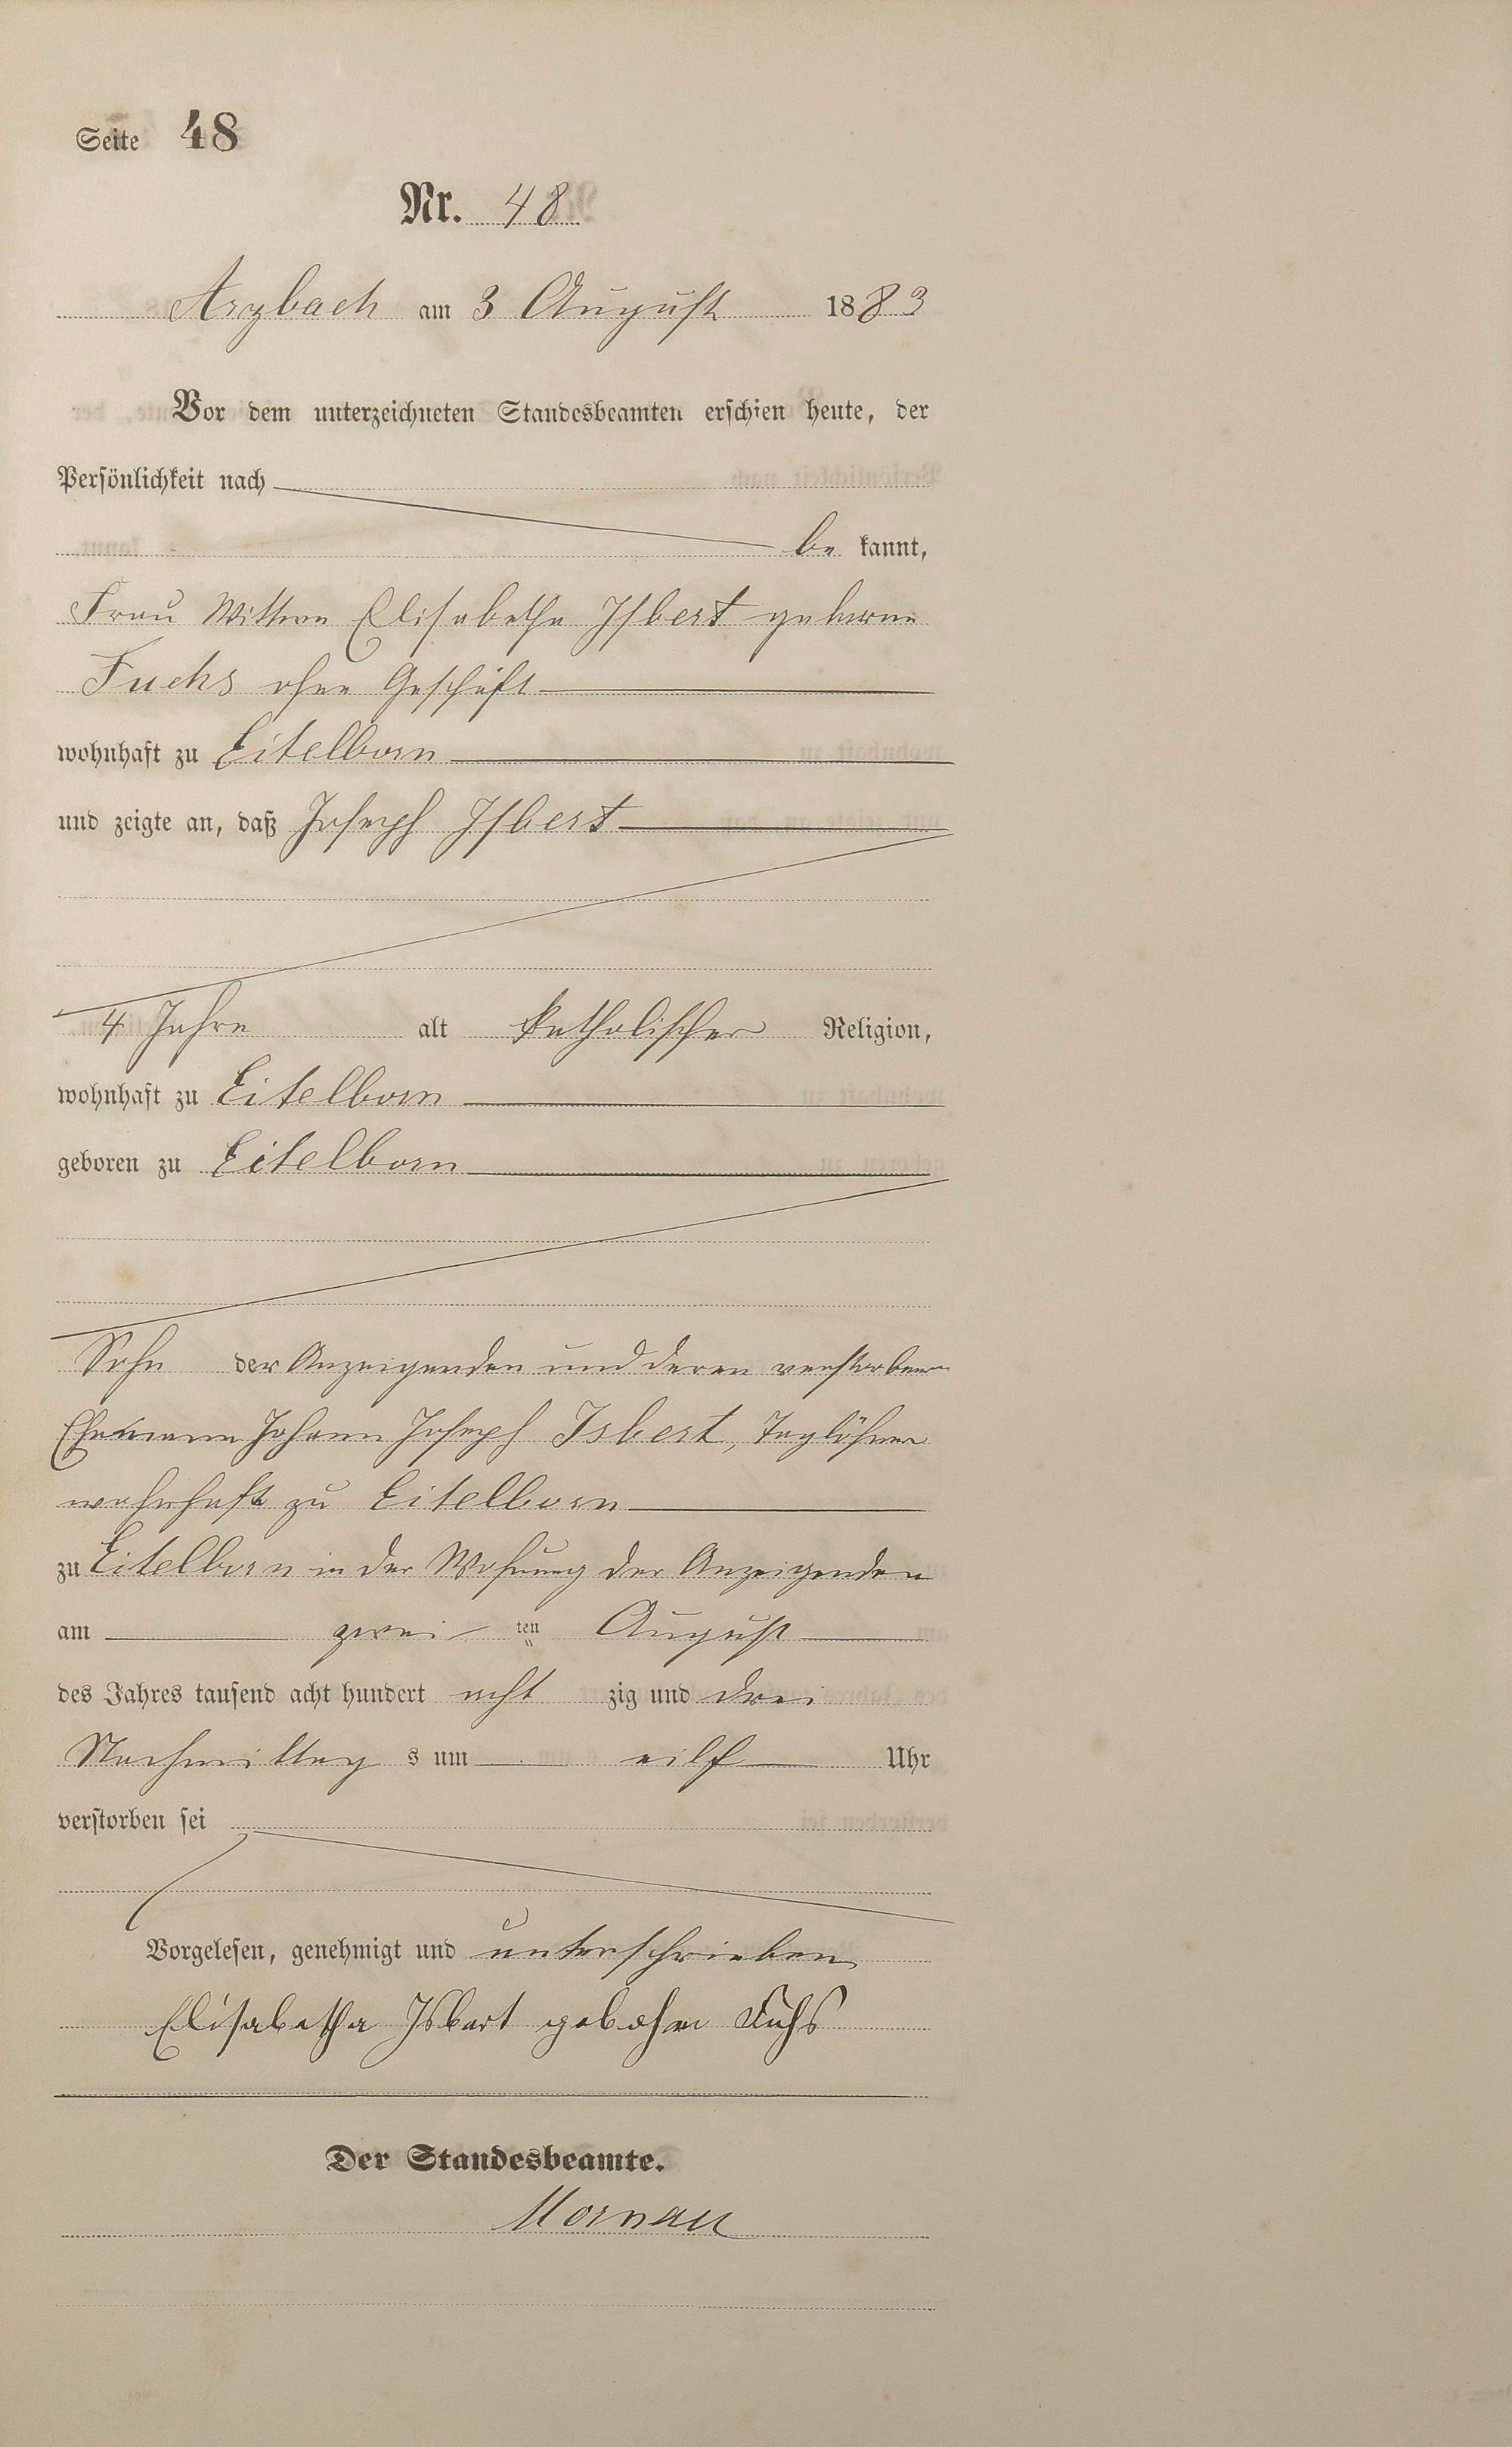 Seite 48
Nr. 48
Arzbach am 3 August 1883
Vor dem unterzeichneten Standesbeamten erschien heute, der
Persönlichkeit nach
be kannt,
Frau Wittwe Elisabetha Isbert geborene
Fuchs ohne Geschäft
wohnhaft zu Eitelborn
und zeigte an, daß Joseph Isbert
4 Jahre alt katholischer Religion,
wohnhaft zu Eitelborn
geboren zu Eitelborn
Sohn der Anzeigenden und deren verstorbenen
Ehemann Johann Joseph Isbert, Taglöhner
wohnhaft zu Eitelborn
zu Eitelborn in der Wohnung der Anzeigenden
am zwei ten August
des Jahres tausend acht hundert acht zig und drei
Nachmittag s um eilf Uhr
verstorben sei
Vorgelesen, genehmigt und unterschrieben
Elisabetha Isbert gebohrn Fuhs
Der Standesbeamte.
Mornau